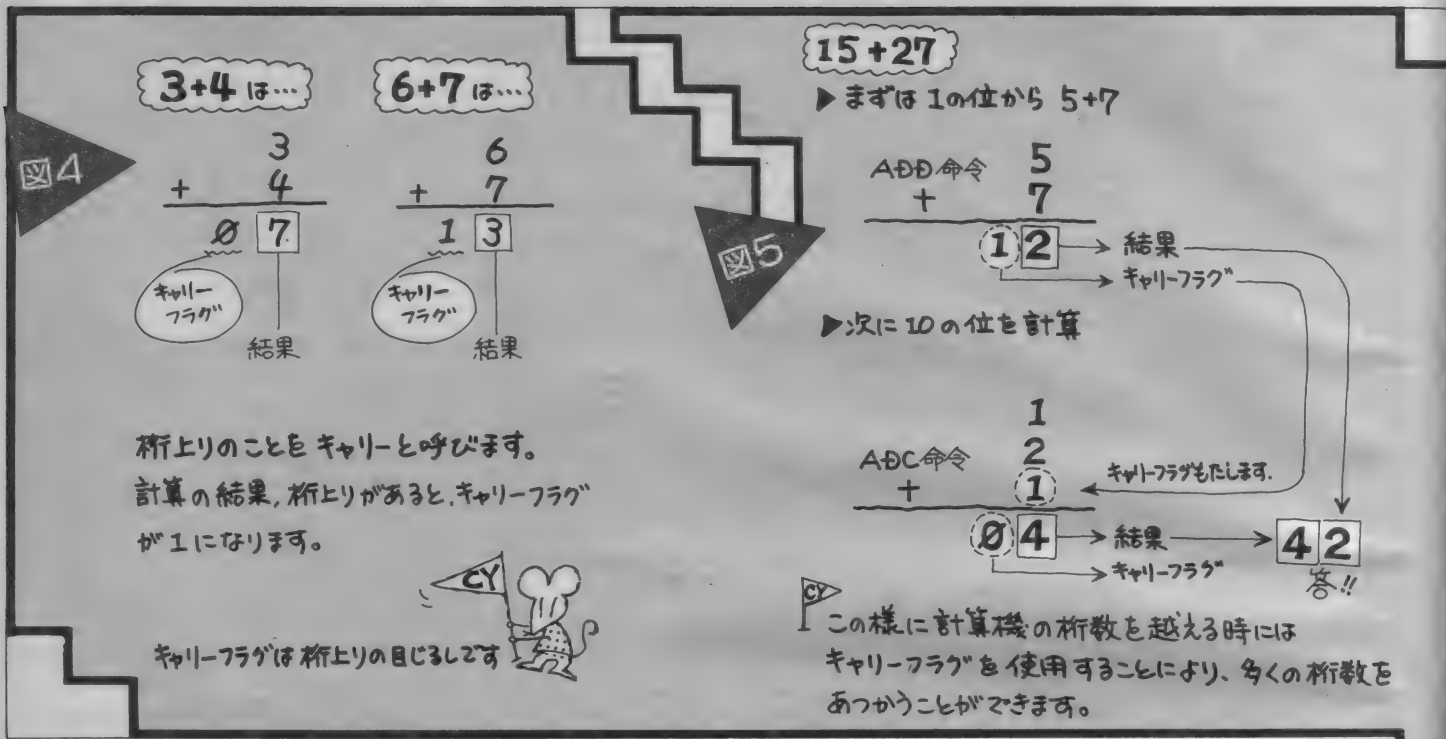 図4
3+4は…
3
+ 4
0 7
キャリー
フラグ
結果
6+7は…
6
+ 7
1 3
キャリー
フラグ
結果
桁上りのことをキャリーと呼びます。
計算の結果,桁上りがあると,キャリーフラグ
が1になります。
CY
キャリーフラグは桁上りの目じるしです
図5
15+27
▶まずは1の位から 5+7
ADD命令 5
+ 7
1 2 → 結果
キャリーフラグ
▶次に10の位を計算
1
ADC命令 2
+ 1
キャリーフラグもたします.
0 4 → 結果 → 4 2
キャリーフラグ
答!!
CY
この様に計算機の桁数を越える時には
キャリーフラグを使用することにより、多くの桁数を
あつかうことができます。